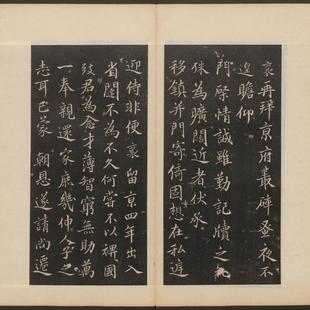 襄再拜京府叢碎晝夜不
遑瞻仰
門屏情誠雖勤記牘之
殊為曠闊近者伏承
移鎮并門寄倚固想在私追
迎侍非便襄留京四年出入
省闥不為不久何嘗不以裨國
致君為念才薄智窮無助萬
一奉親還家庶幾伸人子之
志耳已蒙 朝恩遂請尚遷